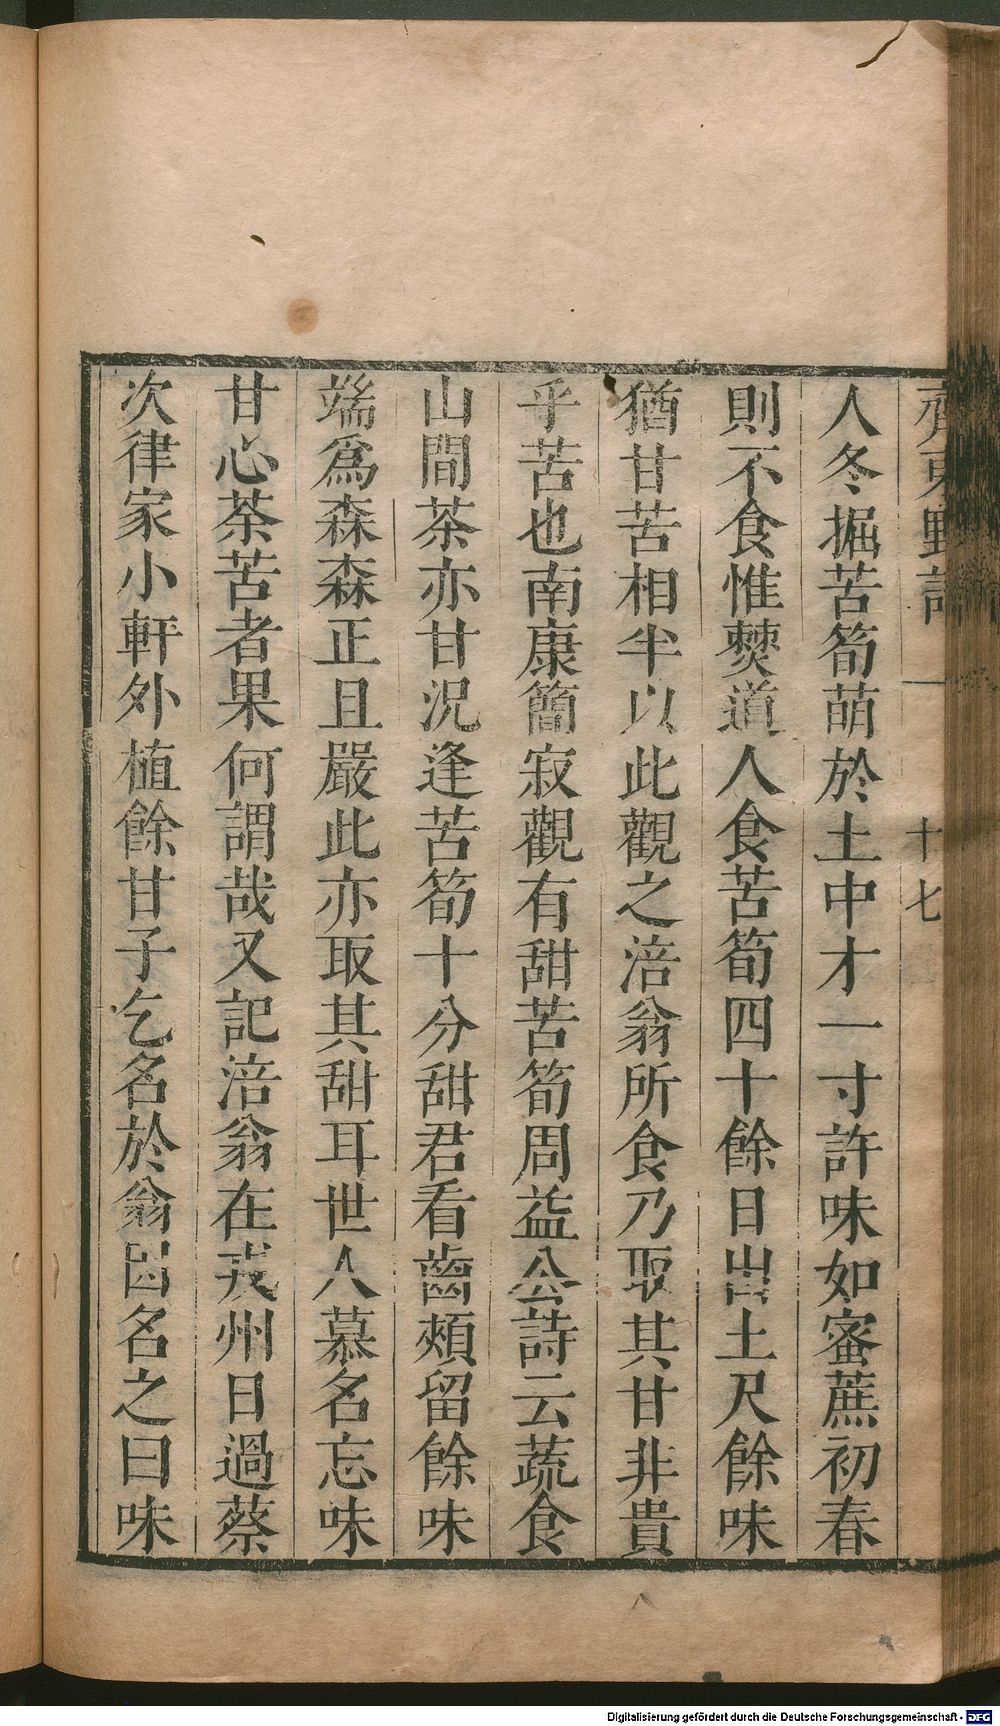 齊東野語 十七
人冬掘苦筍萌於土中才一寸許味如蜜蔗初春
則不食惟僰道人食苦筍四十餘日出土尺餘味
猶甘苦相半以此觀之涪翁所食乃取其甘非貴
乎苦也南康簡寂觀有甜苦筍周益公詩云蔬食
山間茶亦甘況逢苦筍十分甜君看齒頰留餘味
端爲森森正且嚴此亦取其甜耳世人慕名忘味
甘心荼苦者果何謂哉又記涪翁在戎州日過蔡
次律家小軒外植餘甘子乞名於翁因名之曰味
Digitalisierung gefördert durch die Deutsche Forschungsgemeinschaft - DFG